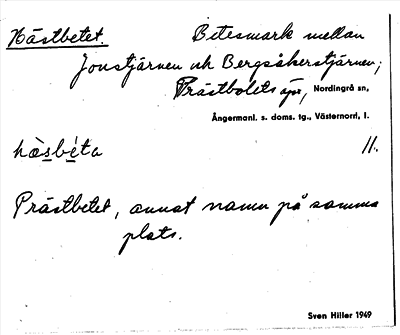 Hästbetet. Betesmark mellan
Jonstjärnen och Bergsåkerstjärnen;
Prästbolets ägor, Nordingrå sn,
Ångermanl. s. doms. tg., Västernorrl. l.
hæ̀sbéta 11.
Prästbetet, annat namn på samma
plats.
Sven Hiller 1949